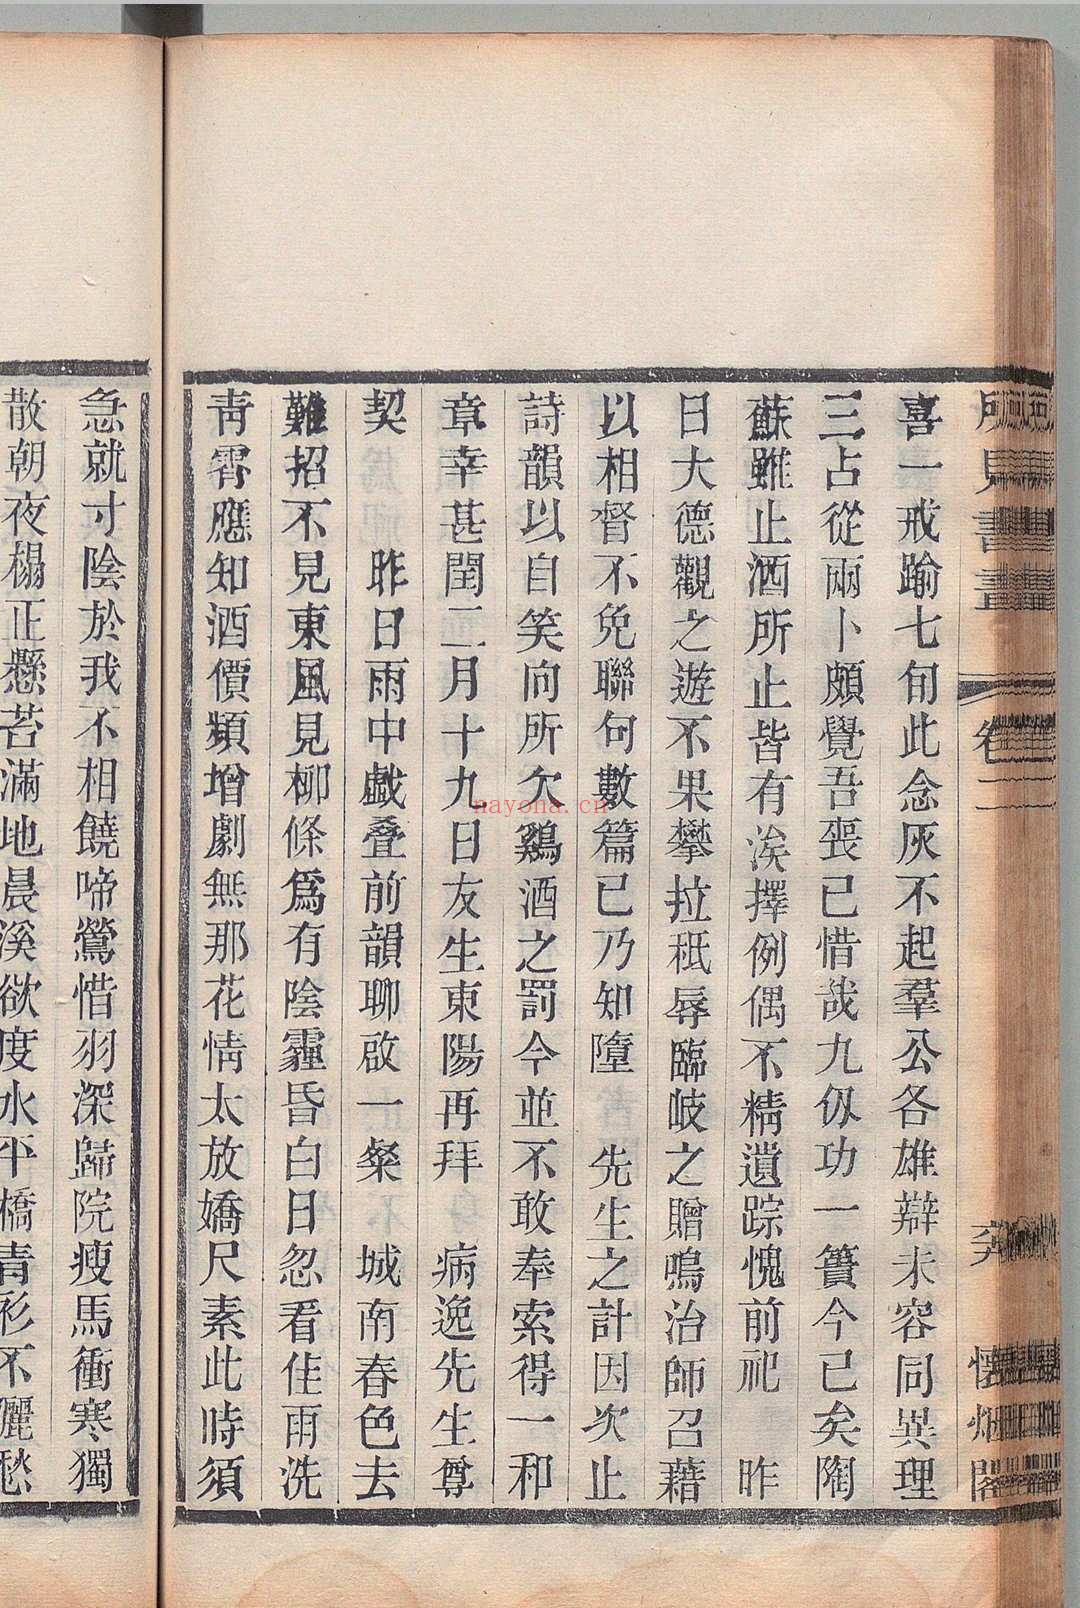 所見書畫
卷二
六
懷烟閣
喜一戒踰七旬此念灰不起羣公各雄辯未容同異理
三占從兩卜頗覺吾喪已惜哉九仭功一簣今已矣陶
蘇雖止酒所止皆有涘擇例偶不精遺踪愧前祀　昨
日大德觀之遊不果攀拉秪辱臨岐之贈鳴治師召藉
以相督不免聯句數篇已乃知墮　先生之計因次止
詩韻以自笑向所欠鷄酒之罰今並不敢奉索得一和
章幸甚閏二月十九日友生東陽再拜　病逸先生尊
契　昨日雨中戲叠前韻聊啟一粲　城南春色去
難招不見東風見柳條爲有陰霾昏白日忽看佳雨洗
青霄應知酒價頻增劇無那花情太放嬌尺素此時須
急就寸陰於我不相饒啼鶯惜羽深歸院瘦馬衝寒獨
散朝夜榻正懸苔滿地晨溪欲度水平橋青衫不灑愁
nayona.cn